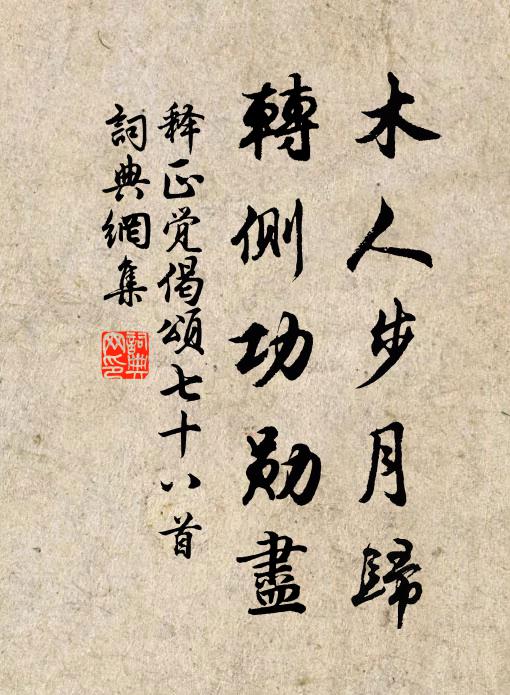 木人步月歸
轉側功勋盡
释正覚偈頌七十八首
詞典網集
詞典网印